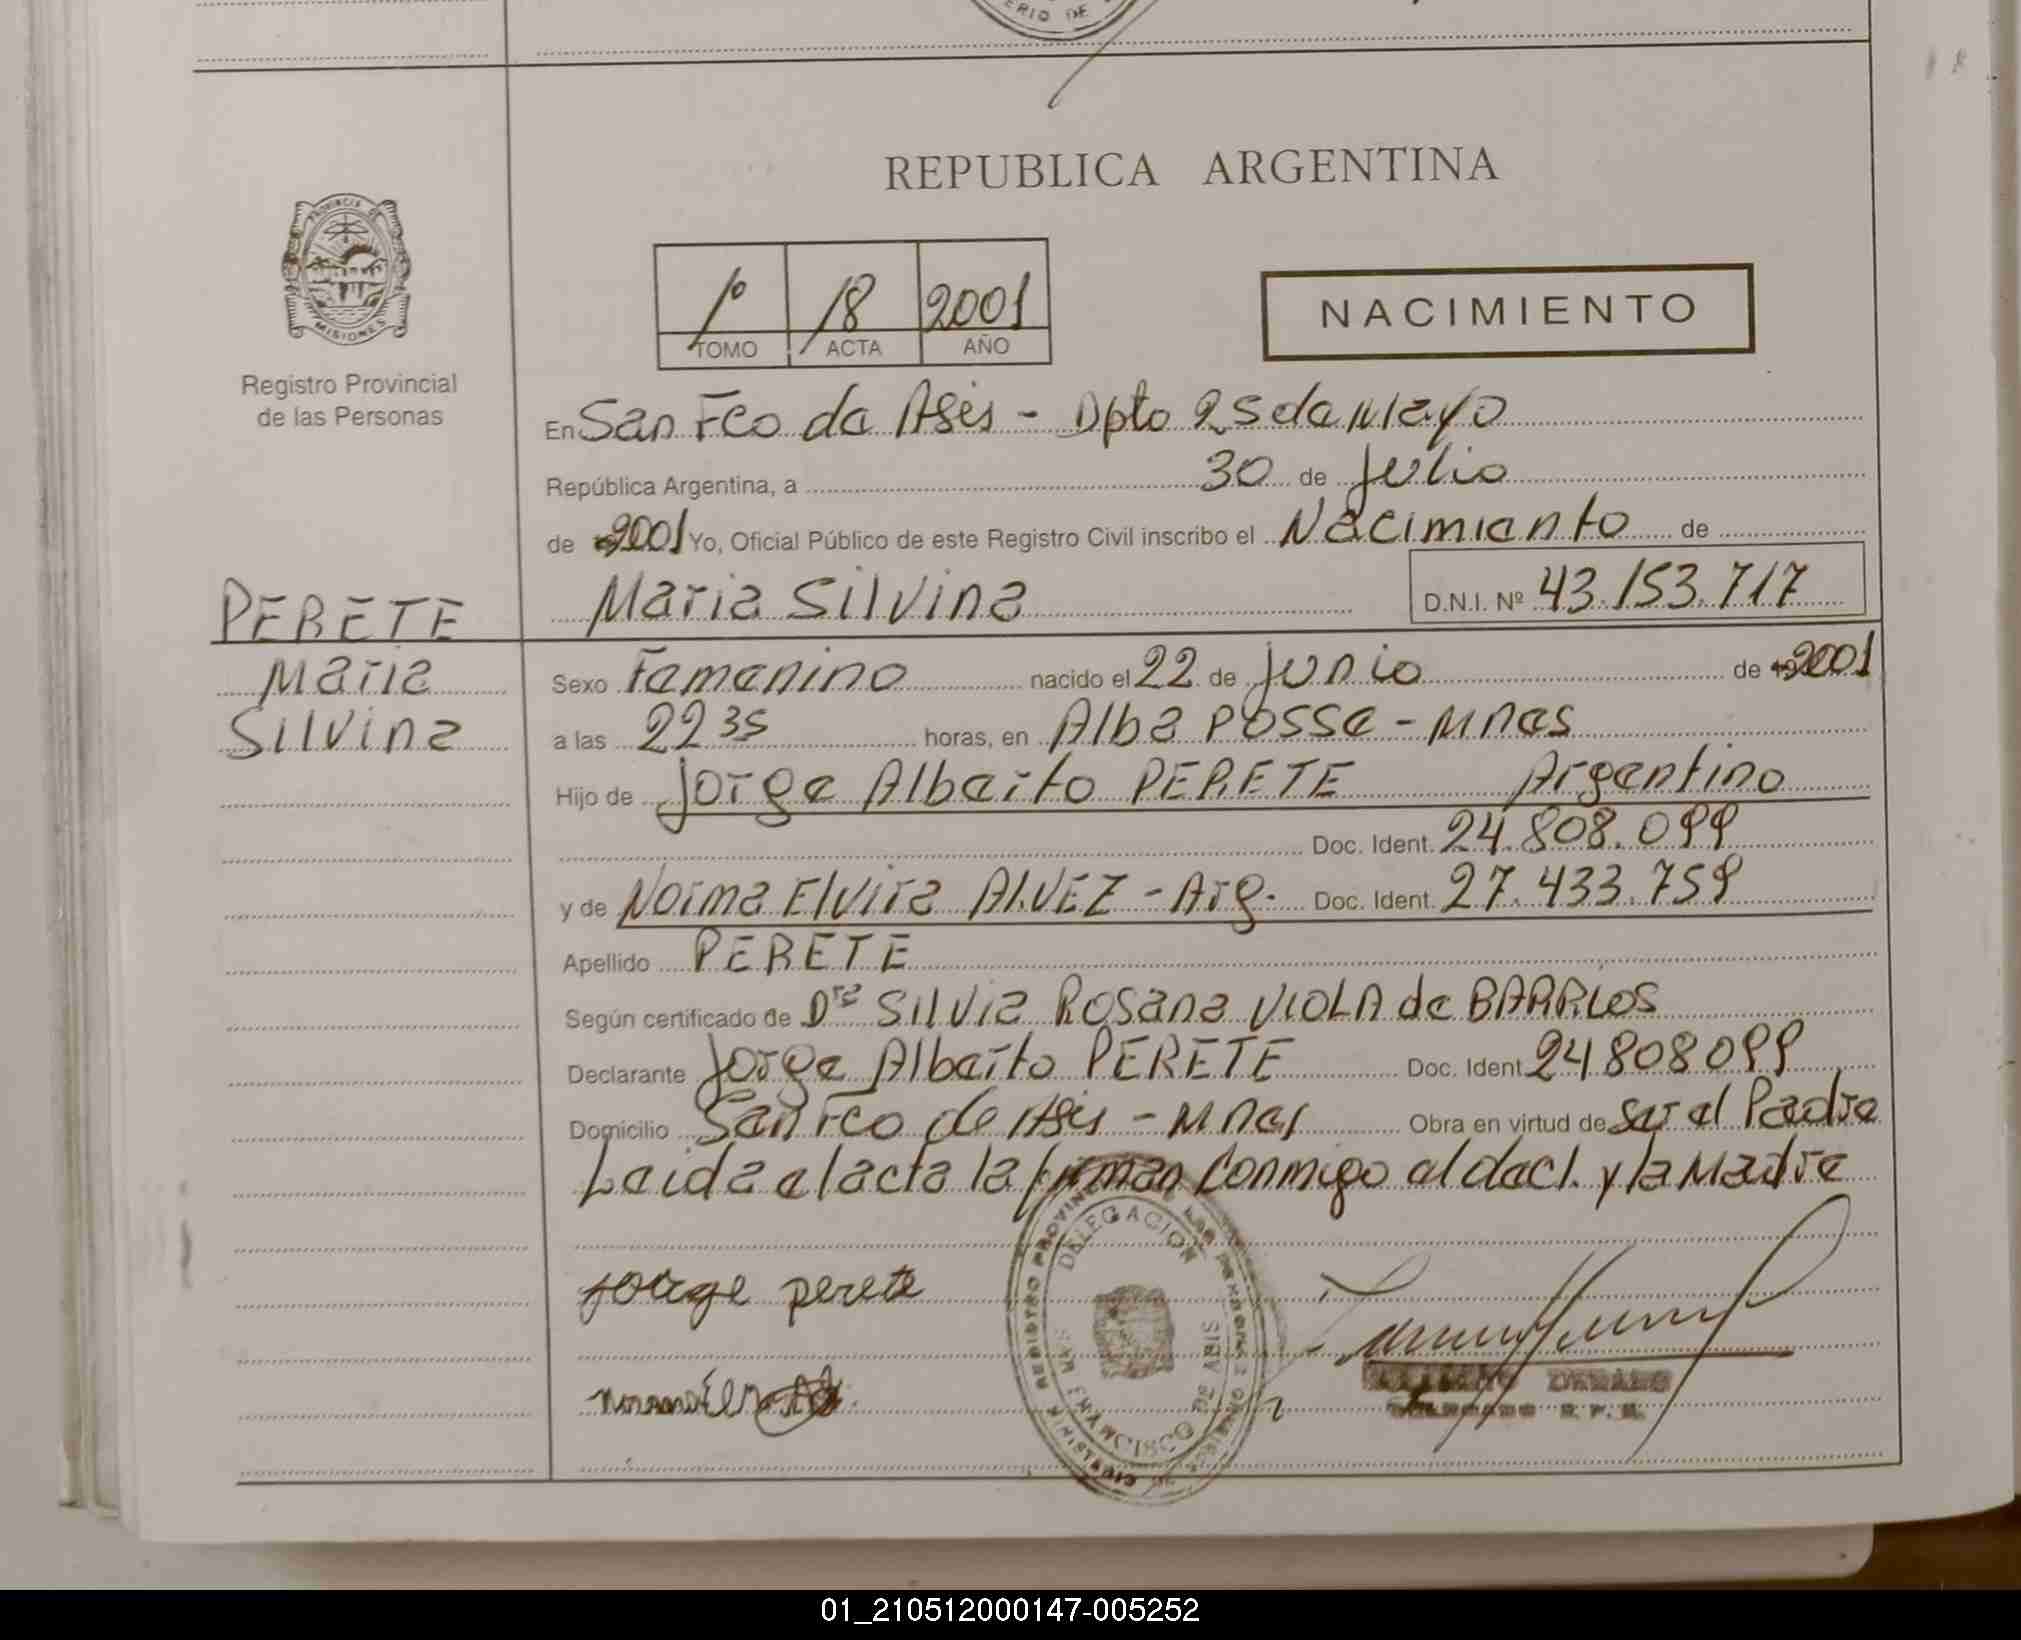 ERIO DE
REPUBLICA ARGENTINA
PROVINCIA DE
MISIONES
Registro Provincial
de las Personas
1º 18 2001
TOMO ACTA AÑO
NACIMIENTO
En San Fco de Asis - Dpto 25 de Mayo
República Argentina, a 30 de Julio
de 2001 Yo, Oficial Público de este Registro Civil inscribo el Nacimiento de
PERETE Maria Silvina D.N.I. Nº 43.153.717
Maria
Silvina
Sexo Femenino nacido el 22 de Junio de 2001
a las 22 35 horas, en Alba Posse - Mnes
Hijo de Jorge Alberto PERETE Argentino
Doc. Ident. 24.808.099
y de Norma Elvira ALVEZ - Arg. Doc. Ident. 27.433.759
Apellido PERETE
Según certificado de Dra Silvia Rosana VIOLA de BARRIOS
Declarante Jorge Alberto PERETE Doc. Ident 24808099
Domicilio San Fco de Asis - Mnes Obra en virtud de ser el Padre
Leida el acta la firman conmigo el decl. y la Madre
Jorge perete
DELEGACION
SAN FRANCISCO DE ASIS
01_210512000147-005252